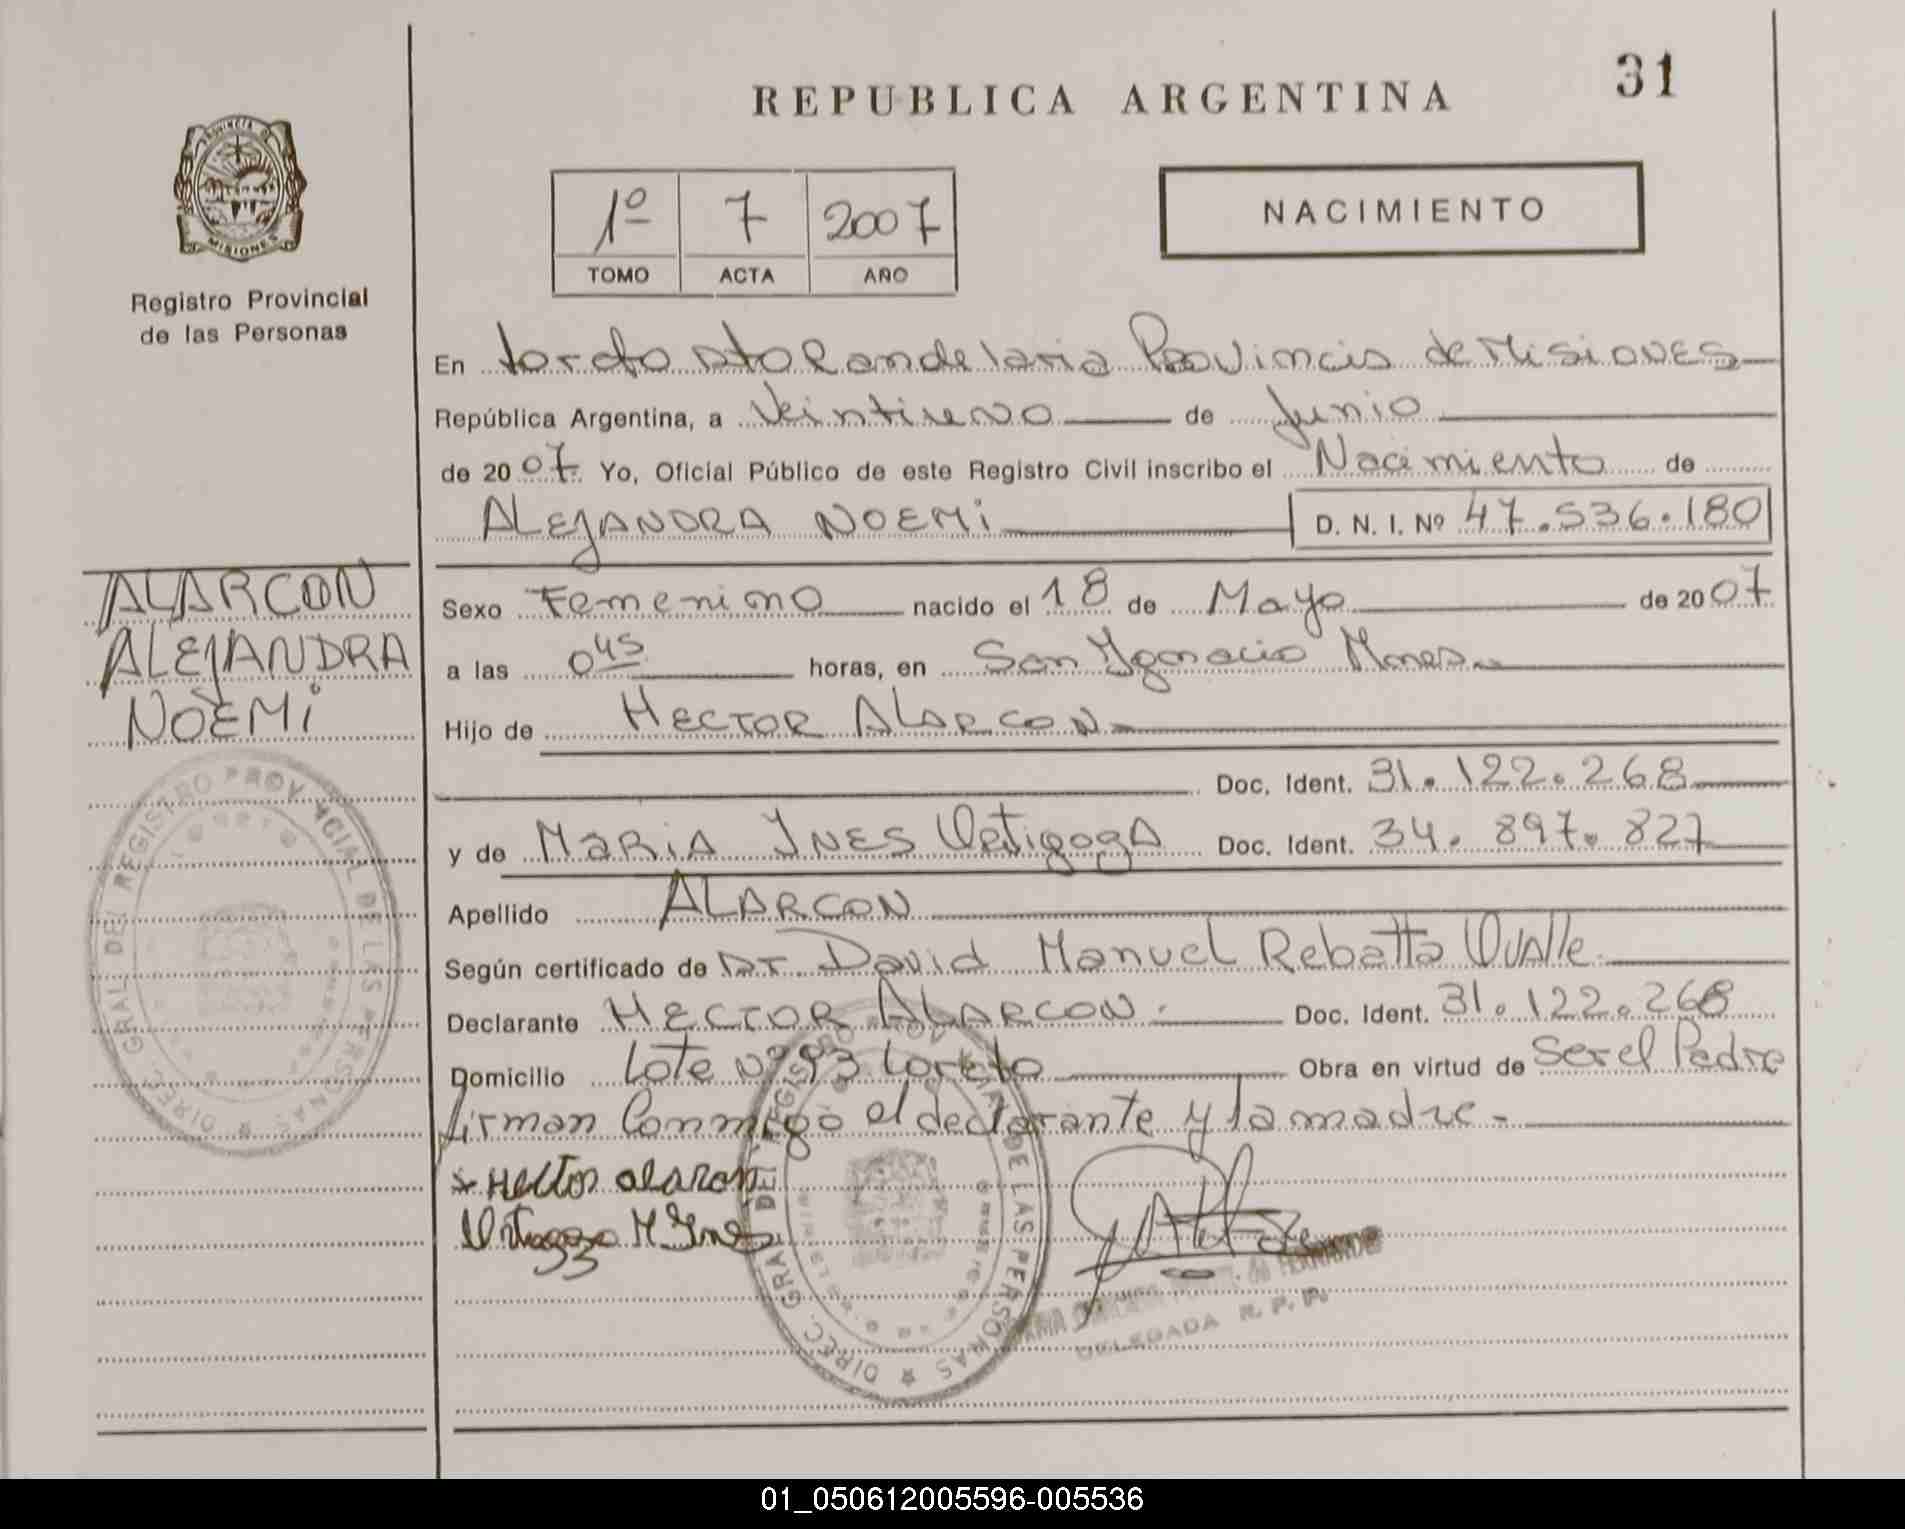 31
REPUBLICA ARGENTINA
PROVINCIA DE
MISIONES
Registro Provincial
de las Personas
1º 7 2007
TOMO ACTA AÑO
NACIMIENTO
En Loreto Dto Candelaria Provincia de Misiones
República Argentina, a Veintiuno de Junio
de 2007 Yo, Oficial Público de este Registro Civil inscribo el Nacimiento de
ALEJANDRA NOEMi D. N. I. Nº 47.536.180
ALARCON
ALEJANDRA
NOEMi
Sexo Femenino nacido el 18 de Mayo de 2007
a las 0 45 horas, en San Ygnacio Mnes
Hijo de HECTOR ALARCON
Doc. Ident. 31.122.268
y de MARiA YNES Doc. Ident. 34.897.827
Apellido ALARCON
Según certificado de Dr David Manuel Rebatta Ovalle
Declarante HECTOR ALARCON. Doc. Ident. 31.122.268
Domicilio Lote Nº 93 Loreto Obra en virtud de Ser el Padre
firman Conmigo el declarante y la madre.-
Hector alarcon
M Ynes
DIREC. GRAL DEL REGISTRO PROVINCIAL DE LAS PERSONAS
DIREC. GRAL DEL REGISTRO PROVINCIAL DE LAS PERSONAS
DELEGADA R. P. P.
01_050612005596-005536